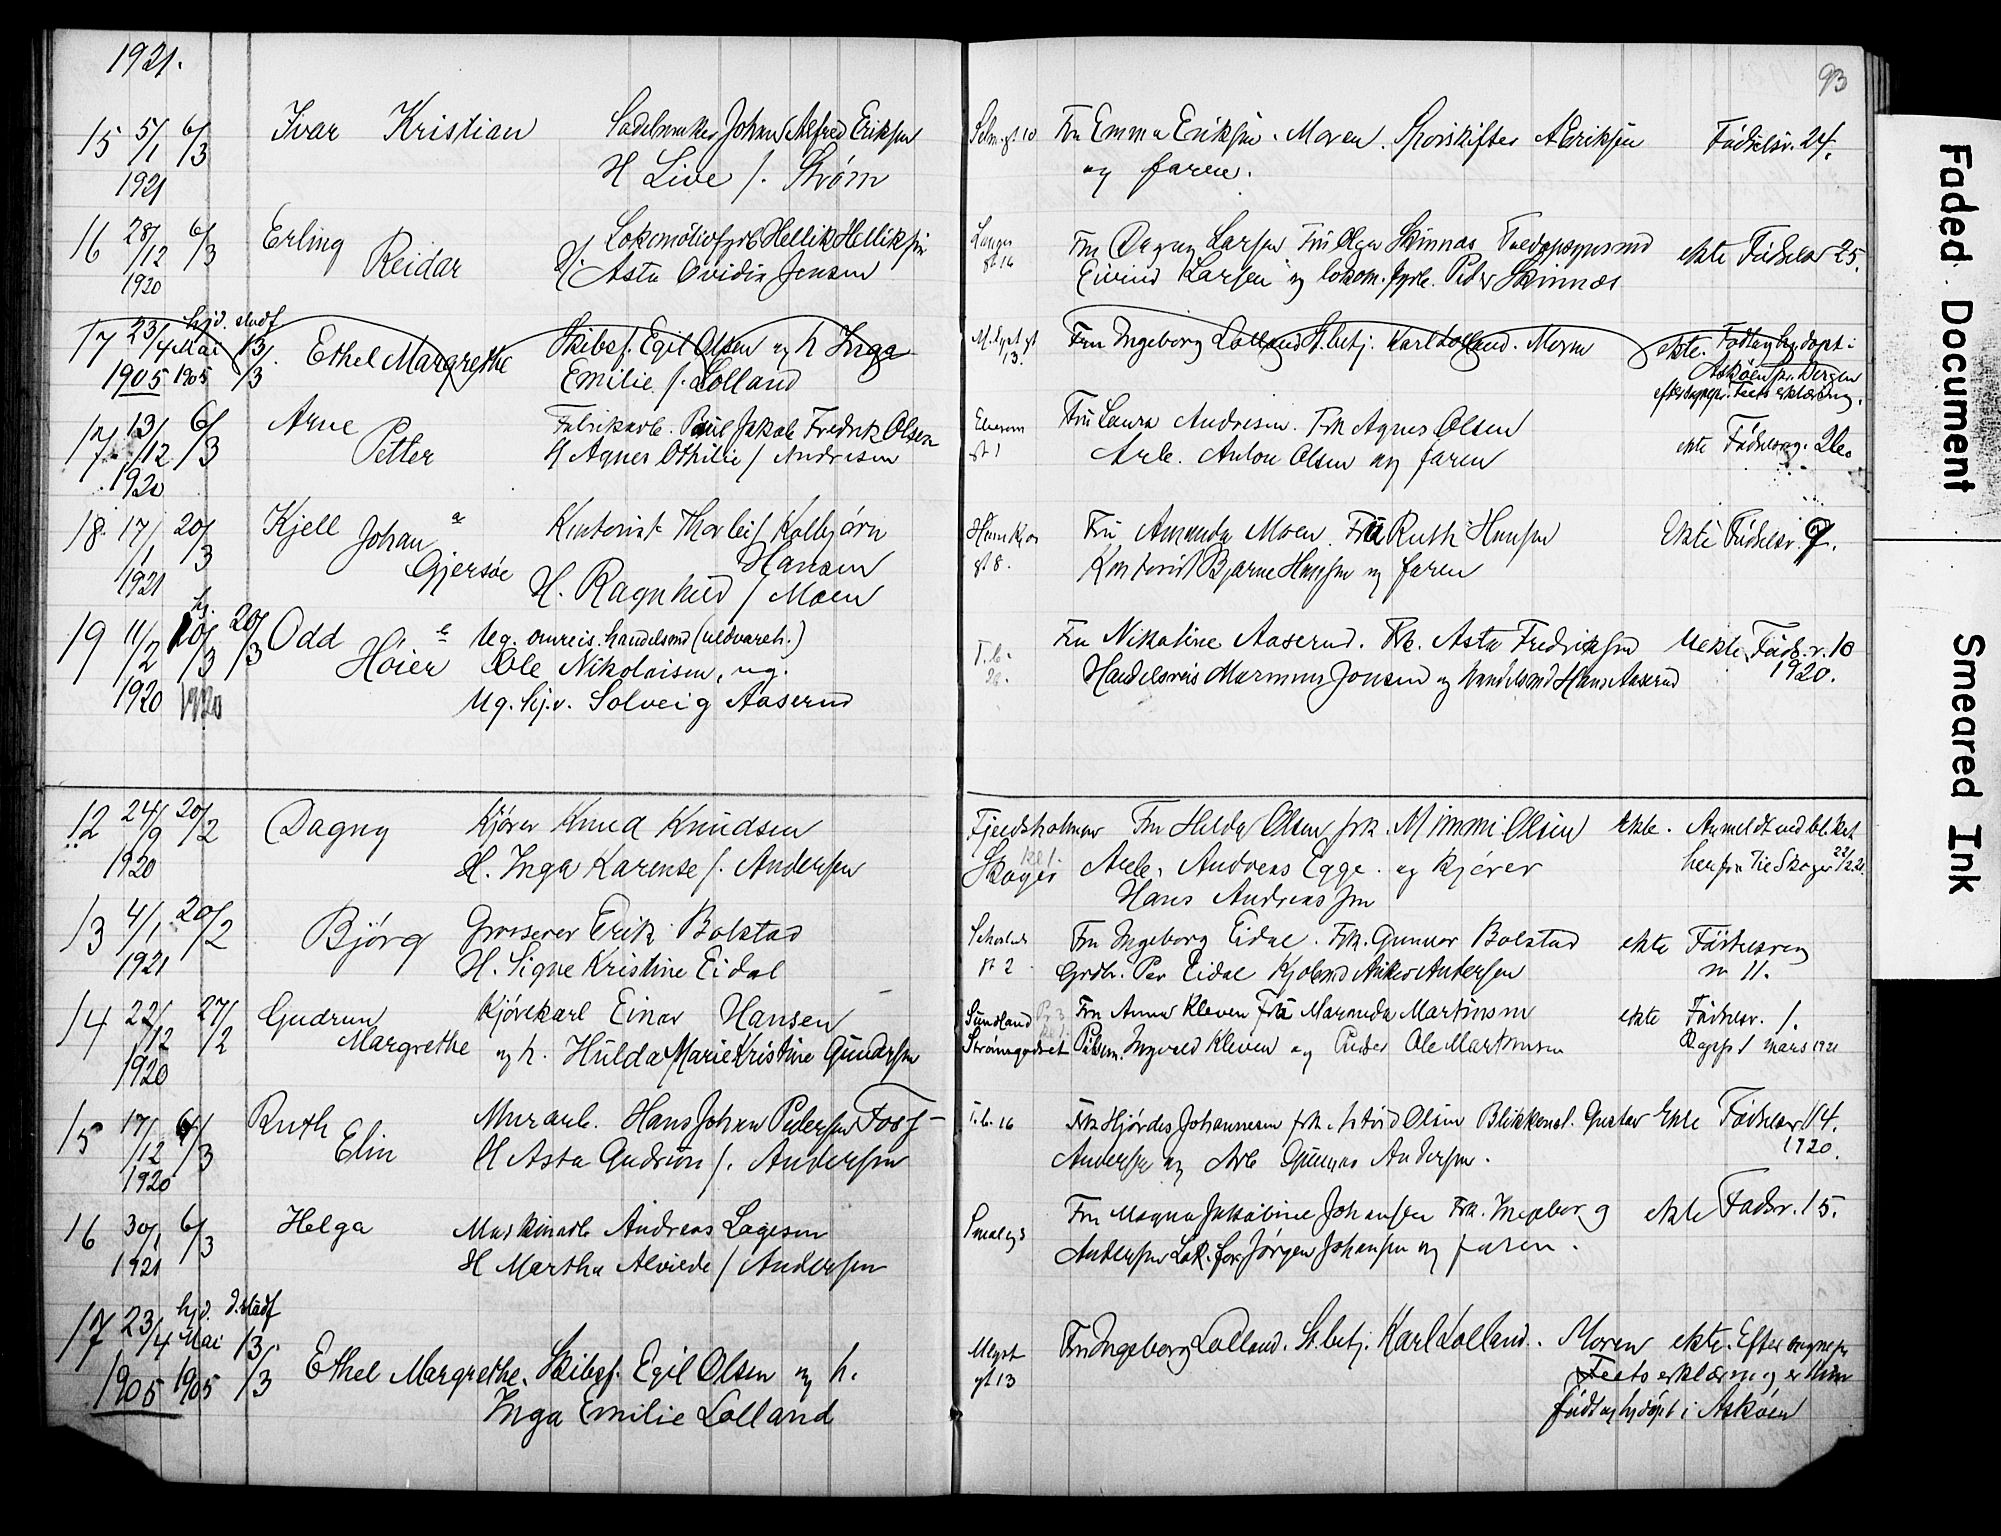 1921.
93
15 5/1 6/3 Ivar Kristian Sadelmaker Johan Alfred Eriksen
1921 H Live f. Strøm
Fru Emma Eriksen. Moren. Sporskifter A Eriksen Fødselsr. 24.
og faren.
16 28/12 6/3 Erling Reidar Lokomotivfyrb Hellik Helliksen
1920 H. Asta Ovidia Jensen
Langes gt 16
Fru Dagny Larsen Fru Olga Skinnes
ekte Fødselsr 25.
Eivind Larsen og lokom. fyrb. Peder Skinnes
17 23/4 hjd. stadf
Mai 13/3
1905 1905
Ethel Margrethe Skibsf. Egil Olsen og h Inga
Emilie f. Lolland
13.
Fru Ingeborg Lolland St.betj. Karl Lolland. Moren
ekte. Født og hjdøpt i
Askøen pr. Bergen
17 13/12 6/3 Arne Petter Fabrikarb. Paul Jakob Fredrik Olsen
1920 H Agnes Othilie f Andresen
gt 1
Fru Laura Andresen. Frk Agnes Olsen
Arb. Anton Olsen og faren
ekte
18. 17/1 20/3 Kjell Johan Gjersøe Kontorist Thorleif Kolbjørn
Hansen
1921 H. Ragnhild f Moen
gt 8.
Fru Amanda Moen. Fru Ruth Hansen
Kontorist Bjarne Hansen og faren
Ekte Fødselsr. 9.
19 11/2 20/3 Odd Høier Ug. omreis. handelsmd (uldvareh.)
Ole Nikolaisen, ug.
1920 1920 Ug. hj.v. Solveig Aaserud
Fru Nikoline Aaserud. Frk. Asta Fredriksen
Handelsreis Jonsen og handelsmd Hans Aaserud
Uekte Føds.r. 10
1920.
12 24/9 20/2 Dagny Kjører Knud Knudsen
1920 H. Inga Karense f. Andersen
Fjeldsholmen
Skoger
Fru Hilda Olsen frk. Mimmi Olsen
Arb. Andreas Egge. og Kjører
Hans Andreassen
ekte. Anmeldt ved bl.ket
herfra til Skoger 22/2.21.
13 4/1 20/2 Bjørg Grosserer Erik Bolstad
1921 H. Signe Kristine Eidal
gt 2
Fru Ingeborg Eidal. Frk. Gunvor Bolstad
Grdbr. Per Eidal Kjøbmd Anker Andersen
ekte Fødselsreg
nr 11.
14 22/12 27/2 Gudrun Margrethe Kjørekarl Einar Hansen
1920 og h. Hulda Marie Kristine Gundersen
Sundland
Strømsgodset
Fru Anna Kleven Fru Maranda Martinsen
Ingvald Kleven og Ole Martinsen
ekte Fødselsr. 1.
Opgp 1 mars 1921
15 17/12 6/3 Ruth Elin Murarb. Hans Johan Pedersen Foss
1920 H Asta Gudrun f. Andersen
T.b. 16
Frk Hjørdis Johannesen frk. Astrid Olsen Blikkensl. Gustav
Andersen og Arb Gunnar Andersen.
Ekte Fødselsr 114.
1920.
16 30/1 6/3 Helga Maskinarb Andreas Lagesen
1921 H Martha Alvilde f Andersen
Smalgt
Fru Magna Jakobine Johansen Frk. Ingeborg
Andersen Lok.for Jørgen Johansen og faren.
ekte Fødsr. 15.
17 23/4 hjd. d.stadf
Mai 13/3
1905 1905
Ethel Margrethe. Skibsf. Egil Olsen og h.
Inga Emilie Lolland
gt 13
Fru Ingeborg Lolland. St.betj. Karl Lolland. Moren
ekte. Efter sognepr
Feets erklæring er hun
født og hjdøpt i Askøen
Faded Document
Smeared Ink